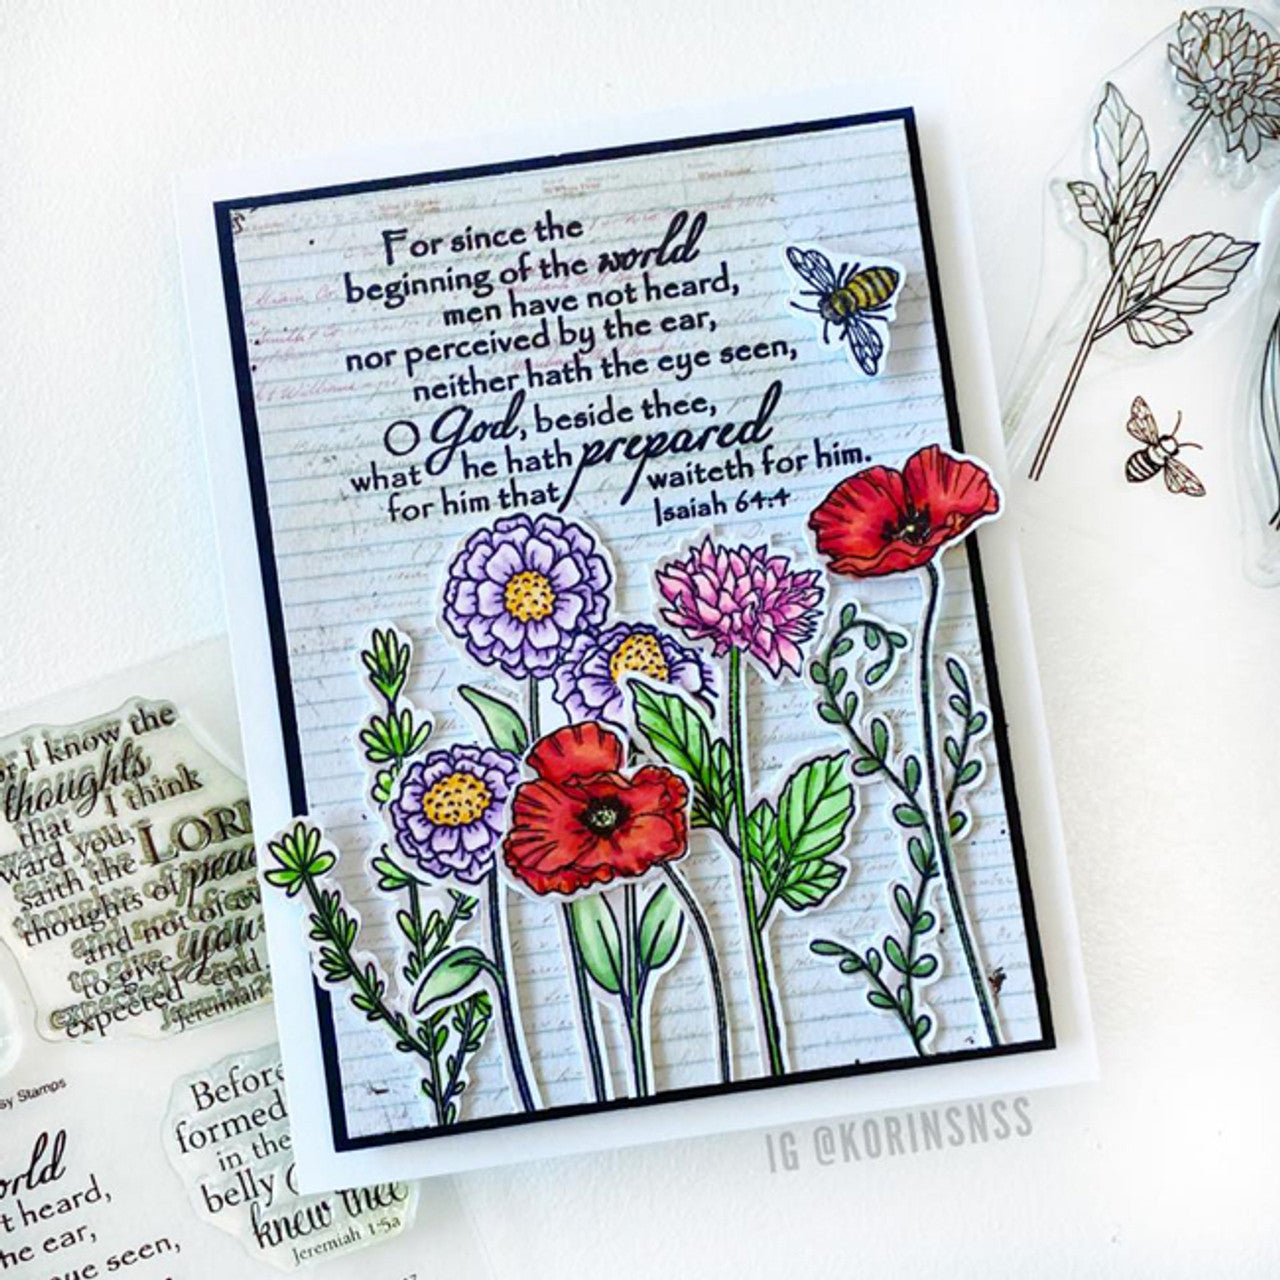 For since the
beginning of the world
men have not heard,
nor perceived by the ear,
neither hath the eye seen,
O God, beside thee,
what he hath prepared
for him that waiteth for him.
Isaiah 64:4
I know the
thoughts
that I think
ward you,
saith the LOR
thoughts of peace
and not of
to give you
expected end.
Jeremiah
sy Stamps
Before
formed
in the
belly
knew thee
Jeremiah 1:5a
orld
t heard,
he ear,
eye seen,
IG @KORINSNSS